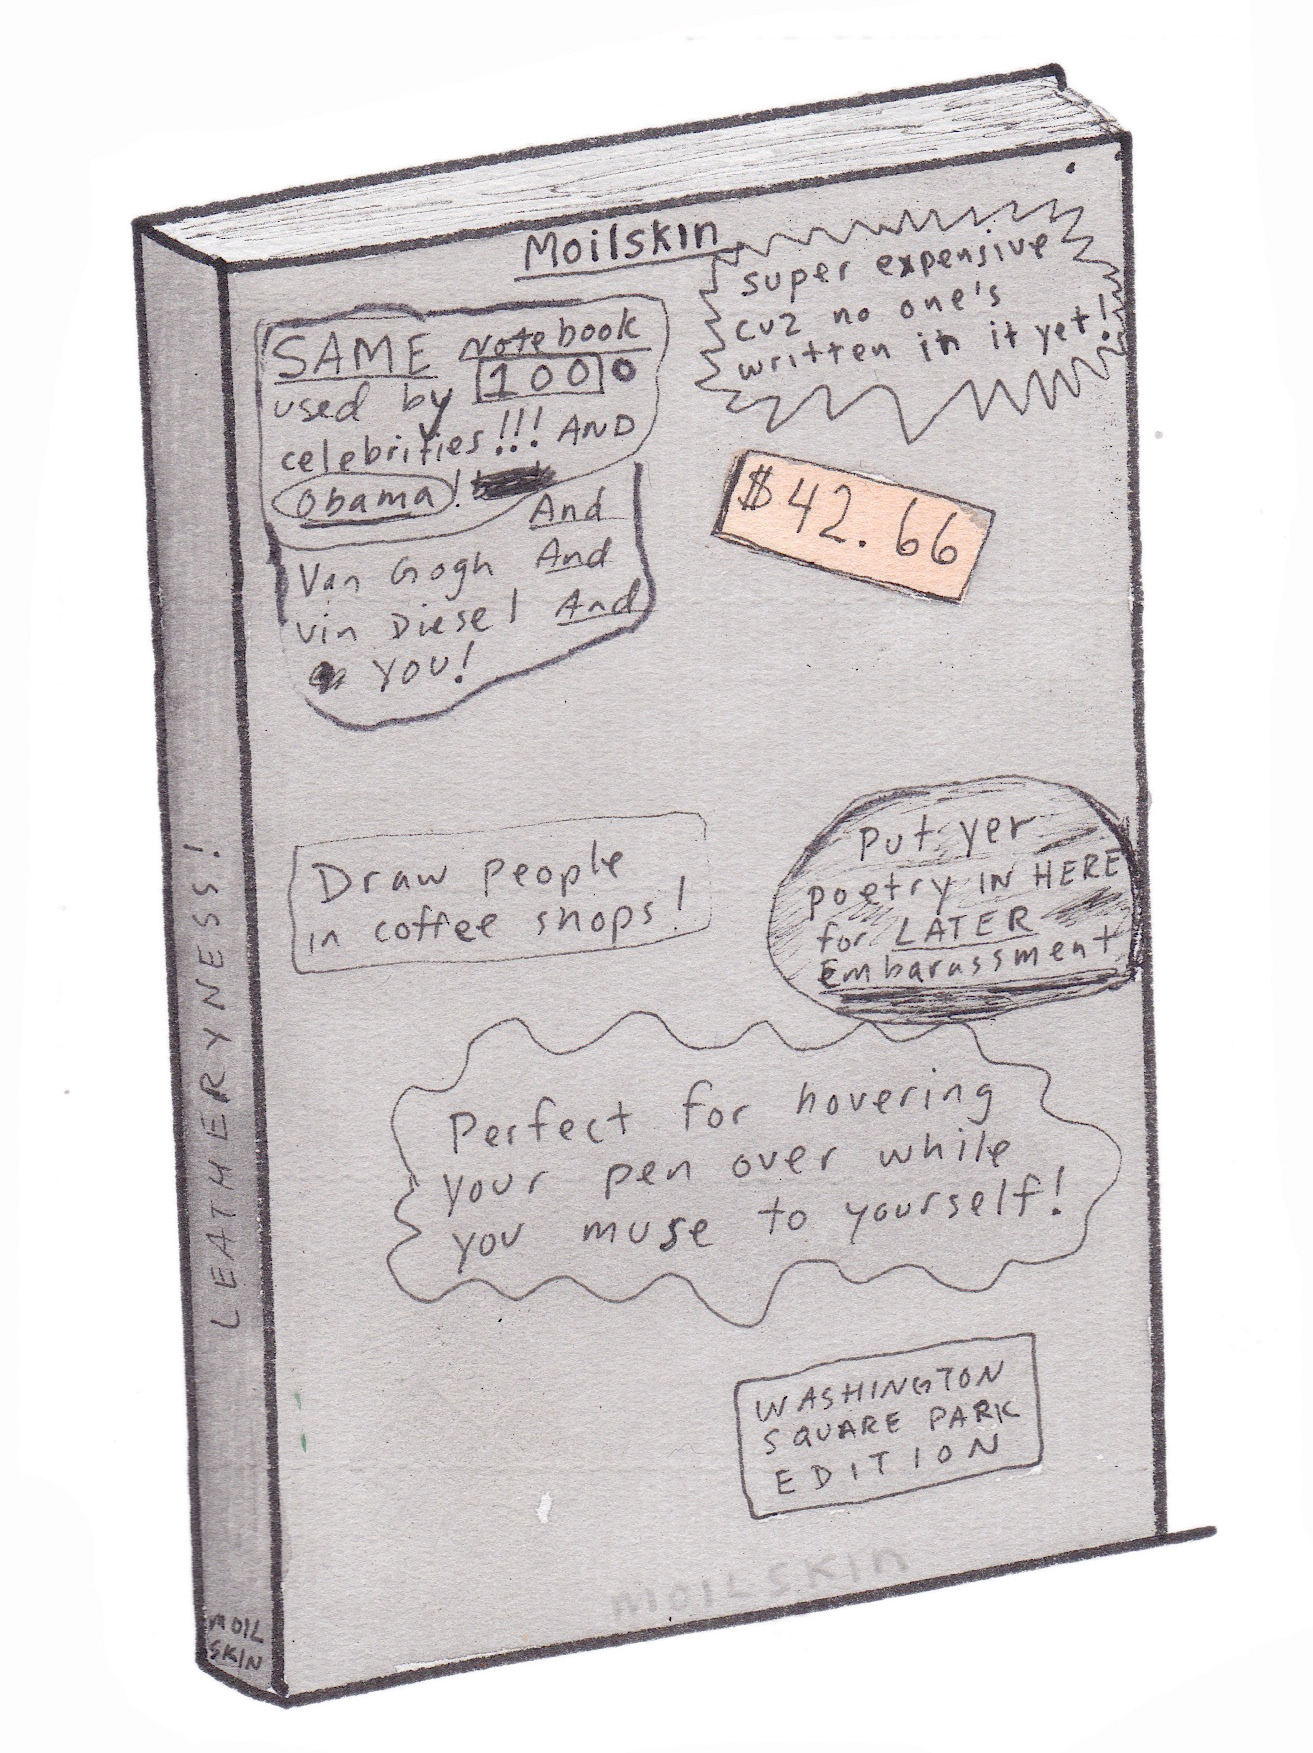 Moilskin
super expensive
cuz no one's
written in it yet!
SAME notebook
used by 1000
celebrities!!! AND
Obama!
And
Van Gogh And
Vin Diesel And
YOU!
$42.66
Draw people
in coffee shops!
Put yer
poetry IN HERE
for LATER
Embarassment
Perfect for hovering
your pen over while
you muse to yourself!
WASHINGTON
SQUARE PARK
EDITION
MOILSKIN
LEATHERYNESS!
MOIL
SKIN